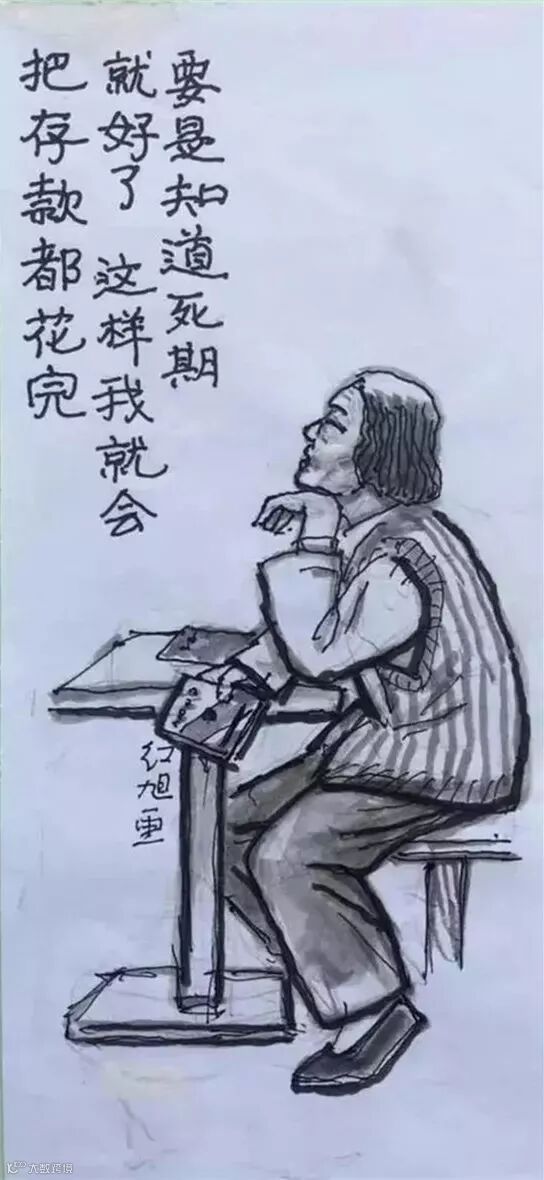 要是知道死期
就好了 这样我就会
把存款都花完
红旭画
大数跨境